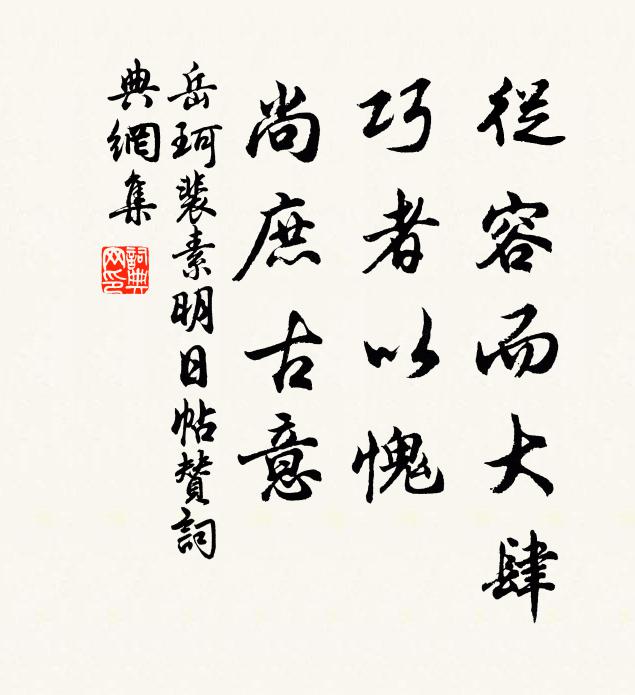 從容而大肆
巧者以愧
尚庶古意
岳珂裴素明日帖贊詞
典網集
詞典
网印